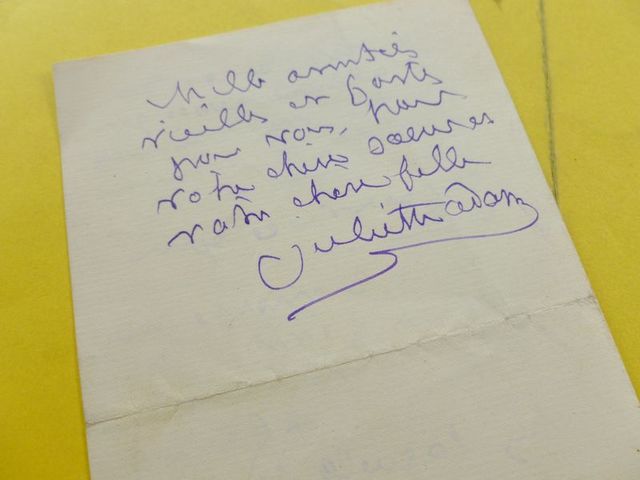 Mille amitiés
vieilles et fortes
pour vous, pour
votre chère soeur et
votre chère fille
Juliette Adam